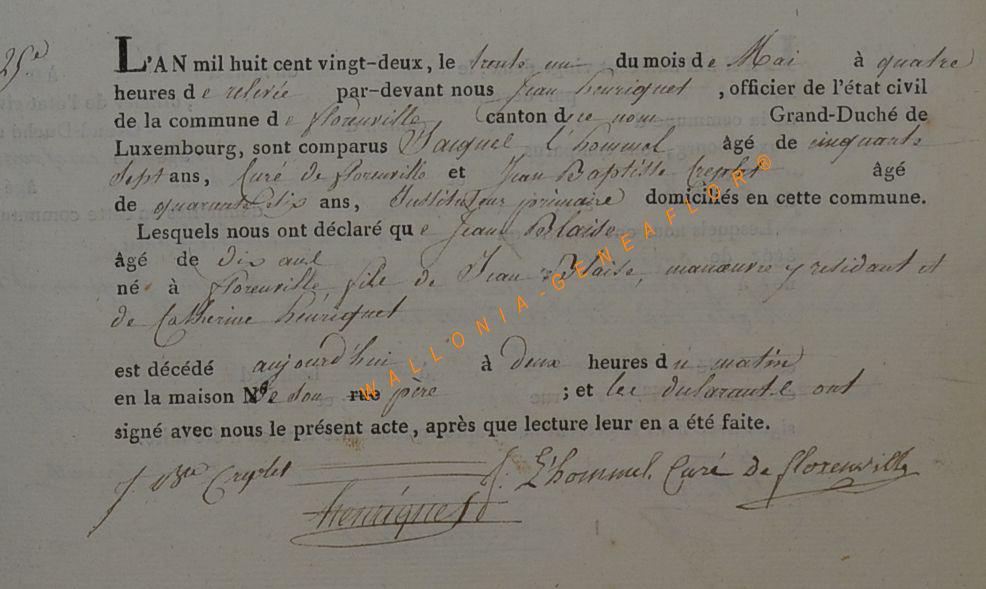 25e
L'AN mil huit cent vingt-deux, le trente un du mois de Mai à quatre
heures de relevée par-devant nous Jean henriquet, officier de l'état civil
de la commune de florenville canton du ce nom Grand-Duché de
Luxembourg, sont comparus Jacques l'hommel âgé de cinquante
sept ans, Curé de florenville et Jean Baptiste Creplet âgé
de quarante six ans, Instituteur primaire domiciliés en cette commune.
Lesquels nous ont déclaré que Jean Blaise
âgé de dix ans
né à florenville fils de Jean Blaise, manœuvre y residant et
de Catherine henriquet
est décédé aujourd'hui à deux heures du matin
en la maison No de son rue père ; et les declarants ont
signé avec nous le présent acte, après que lecture leur en a été faite.
J. Bte Creplet
Henriquet
J. L'hommel Curé de florenville
WALLONIA-GENEAFLOR®